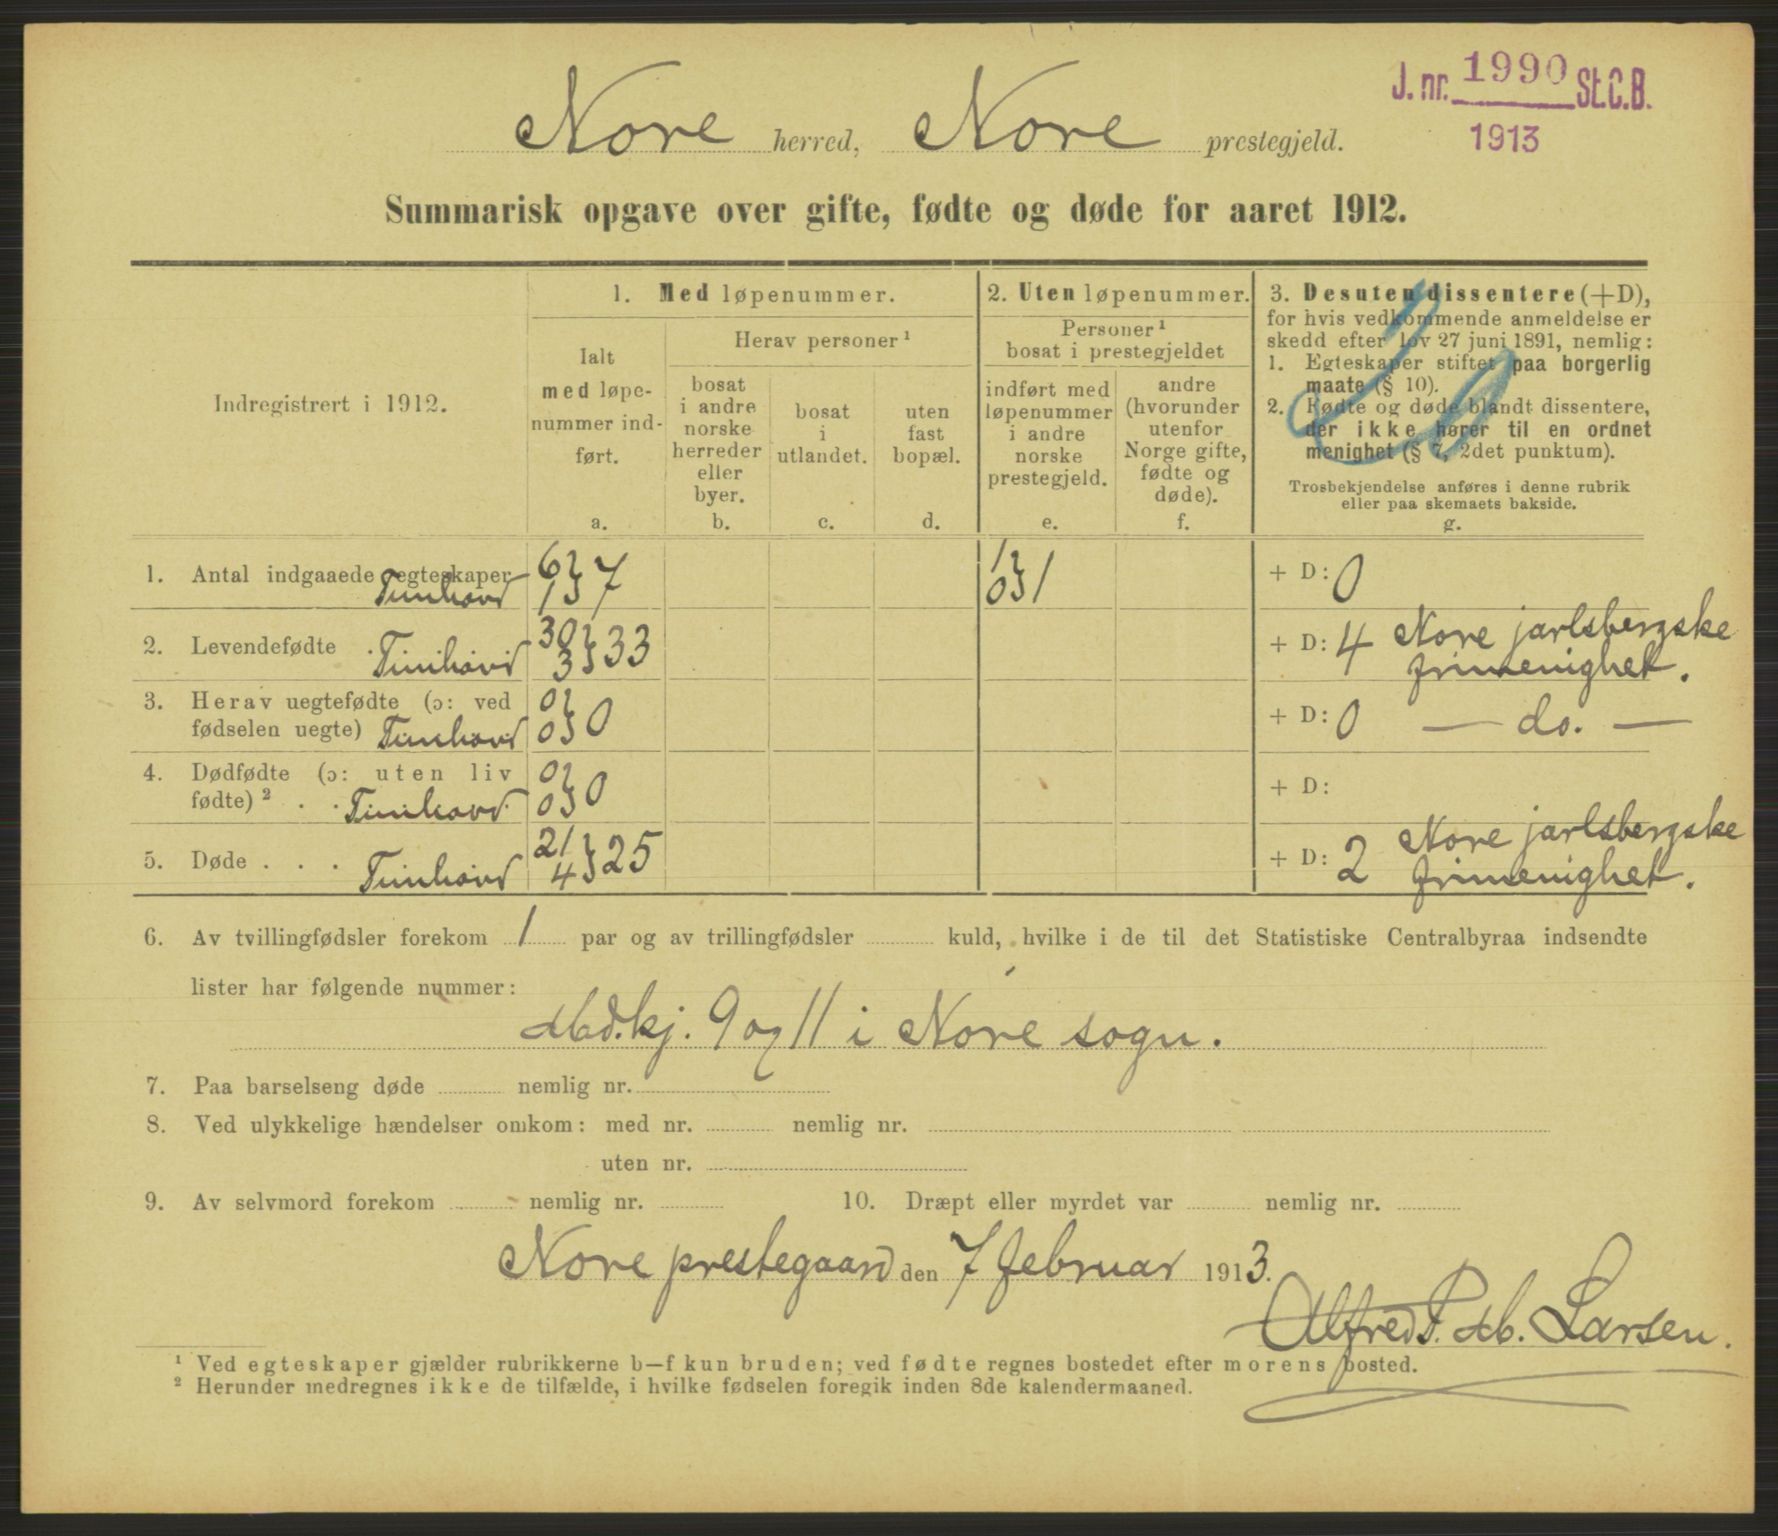 J. nr. 1990 St.C.B.
1913
Nore herred, Nore prestegjeld.
Summarisk opgave over gifte, fødte og døde for aaret 1912.
Indregistrert i 1912.
1. Med løpenummer.
Ialt
med løpe-
nummer ind-
ført.
a.
Herav personer ¹
bosat
i andre
norske
herreder
eller
byer.
b.
bosat
i
utlandet.
c.
uten
fast
bopæl.
d.
2. Uten løpenummer.
Personer ¹
bosat i prestegjeldet
indført med
løpenummer
i andre
norske
prestegjeld.
e.
andre
(hvorunder
utenfor
Norge gifte,
fødte og
døde).
f.
3. Desuten dissentere (+D),
for hvis vedkommende anmeldelse er
skedd efter lov 27 juni 1891, nemlig:
1. Egteskaper stiftet paa borgerlig
maate (§ 10).
2. Fødte og døde blandt dissentere,
der ikke hører til en ordnet
menighet (§ 7, 2det punktum).
Trosbekjendelse anføres i denne rubrik
eller paa skemaets bakside.
g.
1. Antal indgaaede egteskaper 6 } 7 1 } 1 + D: 0
Tunhovd 1 0
2. Levendefødte 30 } 33 + D: 4 Nore jarlsbergske
Tunhovd 3 frimenighet.
3. Herav uegtefødte (ɔ: ved 0 } 0 + D: 0 — do. —
fødselen uegte) Tunhovd 0
4. Dødfødte (ɔ: uten liv 0 } 0 + D:
fødte) ² . . Tunhovd. 0
5. Døde . . . 21 } 25 + D: 2 Nore jarlsbergske
Tunhovd 4 frimenighet.
6. Av tvillingfødsler forekom 1 par og av trillingfødsler kuld, hvilke i de til det Statistiske Centralbyraa indsendte
lister har følgende nummer:
Md.kj. 9 og 11 i Nore sogn.
7. Paa barselseng døde nemlig nr.
8. Ved ulykkelige hændelser omkom: med nr. nemlig nr.
uten nr.
9. Av selvmord forekom nemlig nr. 10. Dræpt eller myrdet var nemlig nr.
Nore prestegaard den 7 februar 1913.
Alfred P. M. Larsen.
¹ Ved egteskaper gjælder rubrikkerne b—f kun bruden; ved fødte regnes bostedet efter morens bosted.
² Herunder medregnes ikke de tilfælde, i hvilke fødselen foregik inden 8de kalendermaaned.